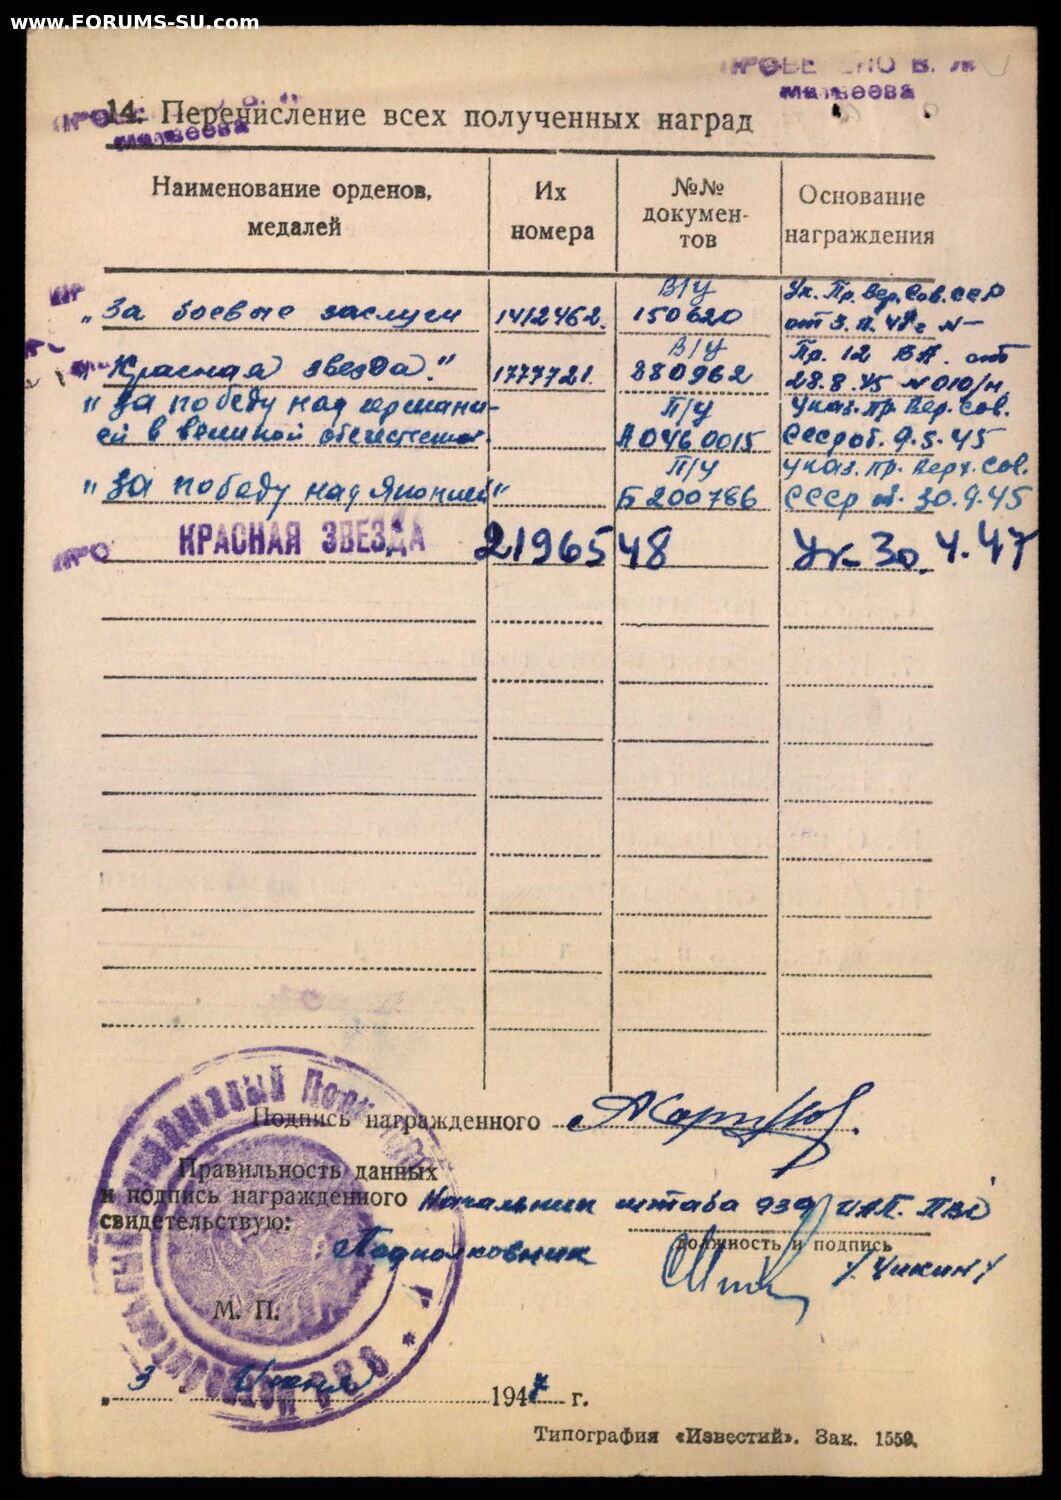 www.FORUMS-SU.com
Матвеева
14. Перечисление всех полученных наград
Матвеева
Наименование орденов, медалей
Их номера
№№ документов
Основание награждения
В/у
Ук. Пр. Вер. Сов. СССР
„За боевые заслуги 1412462. 150620
В/у
Пр. 12 ВА. от
"Красная звезда." 1777721. 880962 28.8.45 №010/н
"За победу над германи- П/у Указ. пр. Вер. Сов.
ей в великой отечествен. А0460015 СССР от. 9.5.45
П/у Указ. пр. Верх. Сов.
"За победу над Японией" Б200786 СССР от. 30.9.45
КРАСНАЯ ЗВЕЗДА 2196548 Ук 30.4.47
Подпись награжденного
Правильность данных
и подпись награжденного Начальник штаба 939 ИАП. ПВО
свидетельствую:
должность и подпись
Подполковник /Чикин/
М. П.
„3 Июня 1947 г.
Типография «Известий». Зак. 1559.